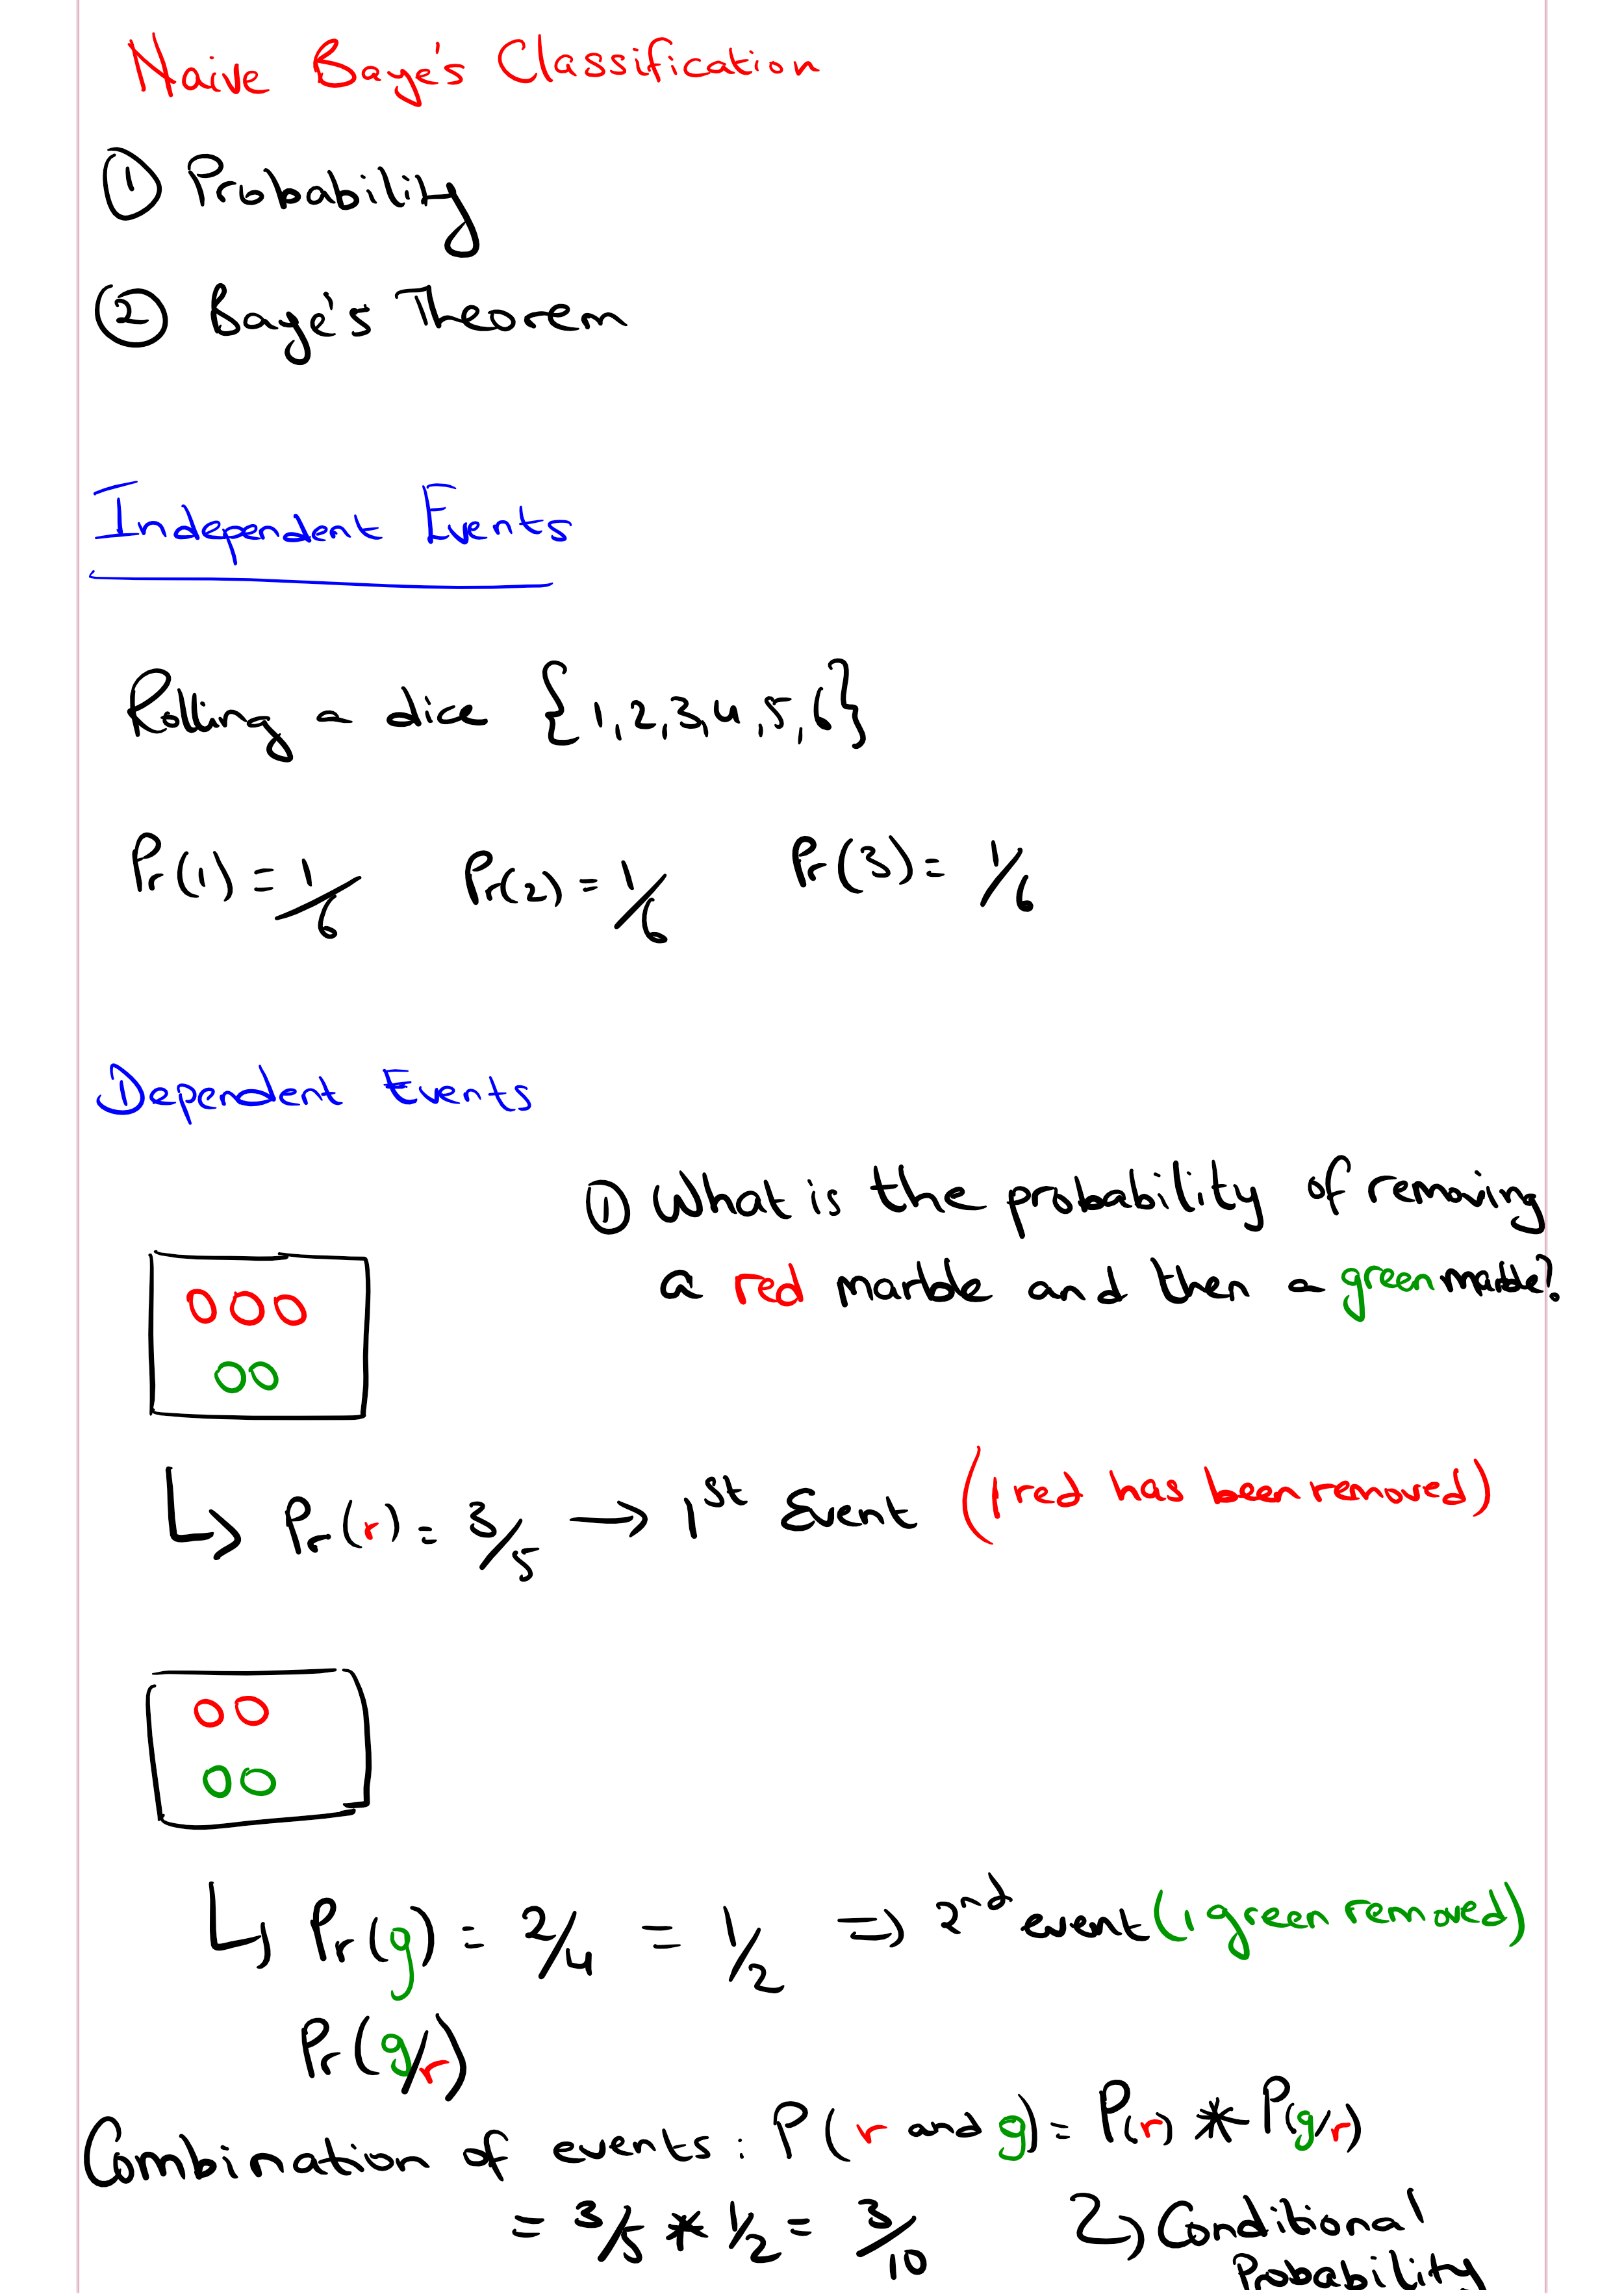 Naive Baye's Classification
① Probability
② Baye's Theorem
Independent Events
Rolling a dice {1,2,3,4,5,6}
Pr(1) = 1/6 Pr(2) = 1/6 Pr(3) = 1/6
Dependent Events
① What is the probability of removing
a red marble and then a green marble?
↳ Pr(r) = 3/5 → 1st Event (1 red has been removed)
↳ Pr(g) = 2/4 = 1/2 ⇒ 2nd event (1 green removed)
Pr(g/r)
Combination of events : P(r and g) = P(r) * P(g/r)
= 3/5 * 1/2 = 3/10 ↳ Conditional
Probability